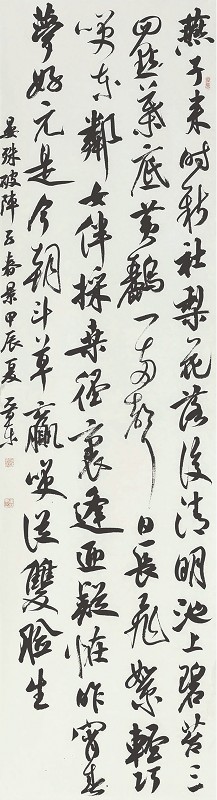 燕子來時新社梨花落後清明池上碧苔三
四點葉底黃鸝一兩聲日長飛絮輕巧
咲東鄰女伴採桑徑裏逢迎疑怪昨宵春
夢好元是今朝斗草贏咲從雙臉生
晏殊破陣子春景甲辰夏